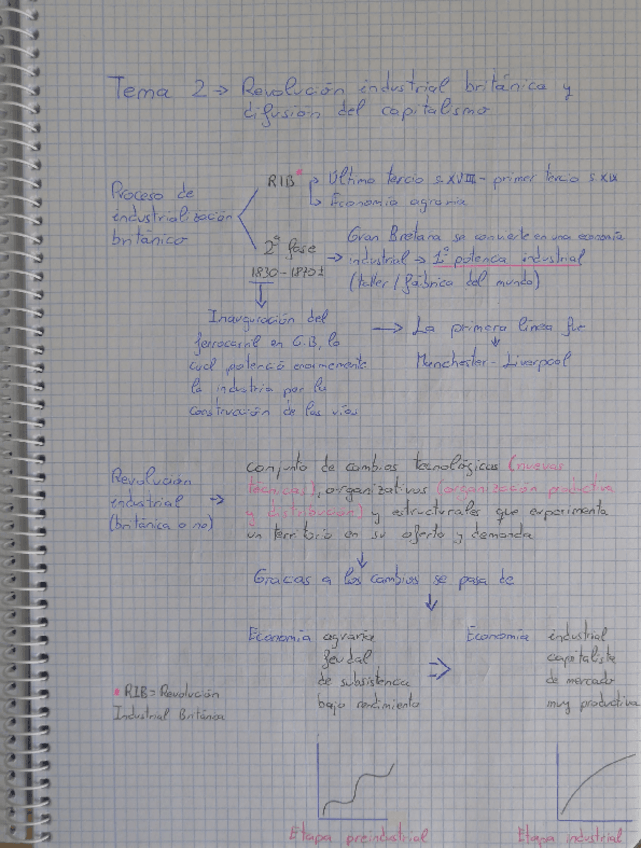 Tema 2 → Revolución industrial británica y
difusión del capitalismo
Proceso de
industrialización
británico
RIB* → Último tercio s. XVIII - primer tercio s. XIX
Economía agraria
2ª fase
1830-1870
→ Gran Bretaña se convierte en una economía
industrial → 1ª potencia industrial
(taller / fábrica del mundo)
Inauguración del
ferrocarril en G.B, lo
cual potenció enormemente
la industria por la
construcción de las vías
→ La primera línea fue
Manchester - Liverpool
Revolución
industrial →
(británica o no)
conjunto de cambios tecnológicos (nuevas
técnicas), organizativos (organización productiva
y distribución) y estructurales que experimenta
un territorio en su oferta y demanda
Gracias a los cambios se pasa de
Economía agraria
feudal
de subsistencia
bajo rendimiento
⇒
Economía industrial
capitalista
de mercado
muy productiva
* RIB = Revolución
Industrial Británica
Etapa preindustrial
Etapa industrial